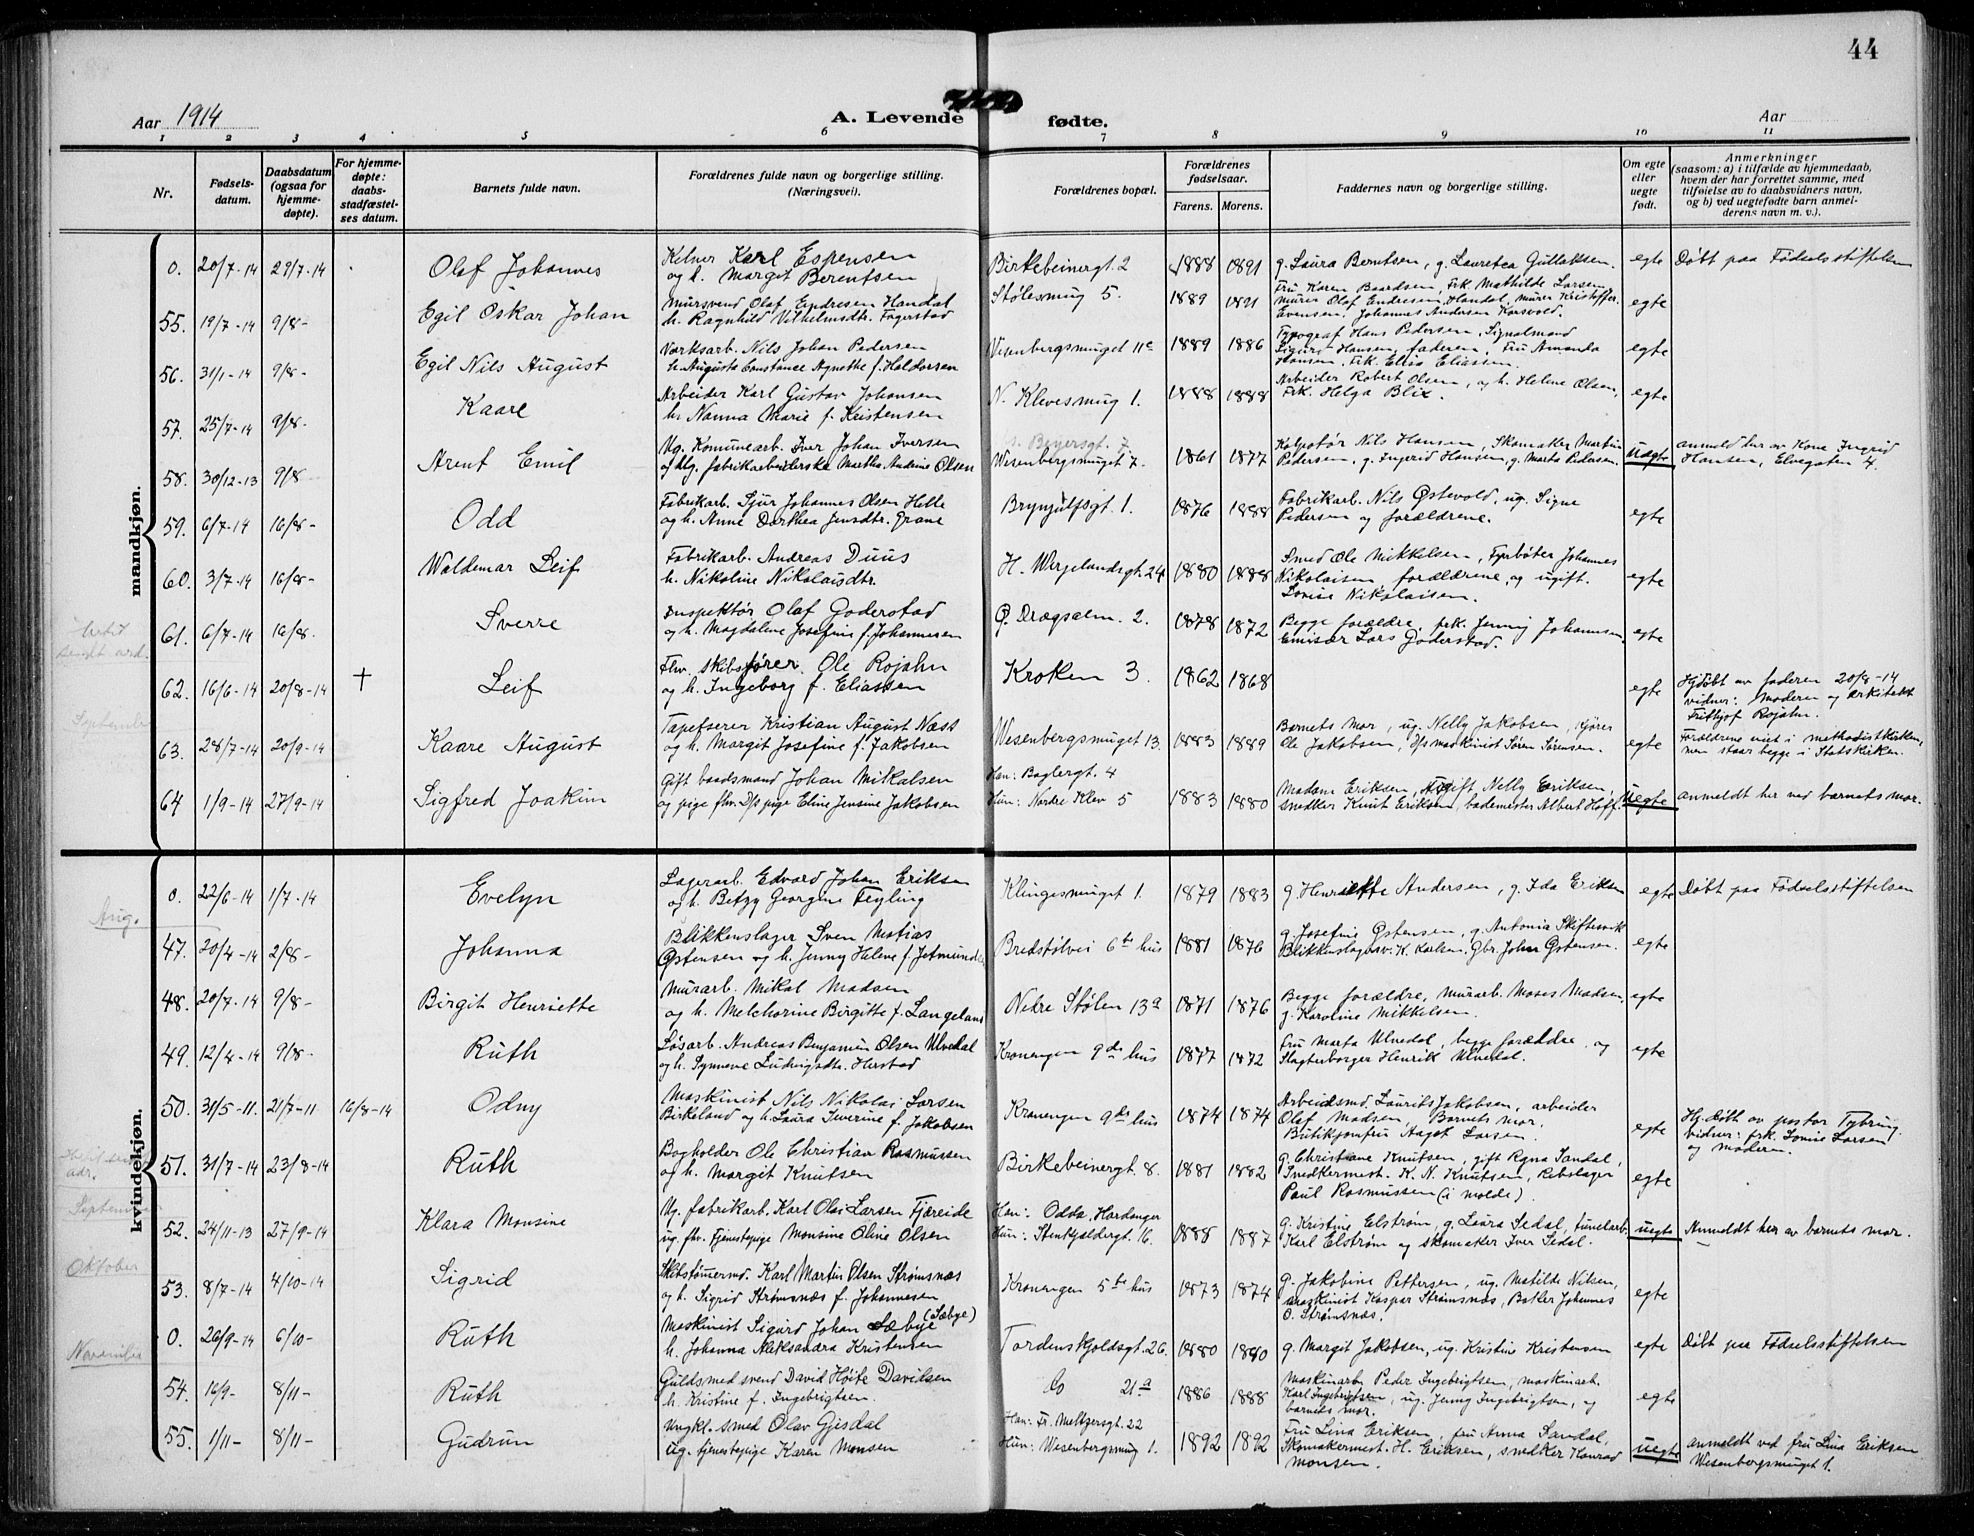 44
Aar 1914
A. Levende fødte.
Aar
1 2 3 4 5 6 7 8 9 10 11
Nr.
Fødsels-
datum.
Daabsdatum
(ogsaa for
hjemme-
døpte).
For hjemme-
døpte:
daabs-
stadfæstel-
ses datum.
Barnets fulde navn.
Forældrenes fulde navn og borgerlige stilling.
(Næringsvei).
Forældrenes bopæl.
Forældrenes
fødselsaar.
Farens. Morens.
Faddernes navn og borgerlige stilling.
Om egte
eller
uegte
født.
Anmerkninger
(saasom: a) i tilfælde av hjemmedaab,
hvem der har forrettet samme, med
tilføielse av to daabsvidners navn,
og b) ved uegtefødte barn anmel-
derens navn m. v.).
mandkjøn.
0. 20/7-14 29/7-14 Olaf Johannes
Kelner Karl Espensen
og h. Margit Berentsen
Birkebeinergt. 2 1888 1891
g. Laura Berntsen, g. Lauretea Gullaksen.
egte Døbt paa Fødselsstiftelsen
55. 19/7-14 9/8- Egil Oskar Johan
Mursvend Olaf Endresen Handal
h. Ragnhild Vilhelmsdtr. Fagerstad
Stølesmug 5. 1889 1891
Fru Karen Baardsen, Frk Mathilde Larsen,
Murer Olaf Endresen Handal, murer Kristoffer
Evensen, Johannes Andersen Korsvold.
egte
56. 31/1-14 9/8- Egil Nils August
Værksarb. Nils Johan Pedersen
h. Augusta Constance Agnethe f. Haldorsen
Wesenbergsmuget 11c 1889 1886
Typograf Hans Pedersen, Signalmand
Sigurd Hansen, faderen, Fru Amanda
Hansen, Frk. Elisa Eliassen.
egte
57. 25/7-14 9/8- Kaare
Arbeider Karl Gustav Johansen
h. Nanna Marie f. Kristensen
N. Klevesmug 1. 1888 1888
Arbeider Robert Olsen, og h. Helene Olsen,
Frk. Helga Blix.
egte
58. 30/12-13 9/8 Arent Emil
Ug. Komunearb. Iver Johan Iversen
og Ug. fabrikarbeiderske Martha Andrine Olsen
Beyersgt. 7
Wesenbergsmuget 7. 1861 1877
Kolportør Nils Hansen, Skomaker Martin
Pedersen, g. Ingerid Hansen, g. Marta Pedersen.
Uegte
anmeld her av Kona Ingrid
Hansen, Elvegaten 4.
59. 6/7-14 16/8- Odd
Fabrikarb. Sjur Johannes Olsen Helle
og h. Anne Dorthea Jensdtr. Grane
Brynjulfsgt. 1. 1876 1888
Fabrikarb. Nils Østevold, ug. Signe
Pedersen og forældrene.
egte
60. 3/7-14 16/8- Waldemar Leif
Fabrikarb. Andreas Duus
h. Nikoline Nikolaisdtr.
H. Wergelandsgt. 24 1880 1888
Smed Ole Mikkelsen, Fyrbøter Johannes
Nikolaisen, forældrene, og ugift.
Lovise Nikolaisen.
egte
61. 6/7-14 16/8. Sverre
Inspektør Olaf Goderstad
og h. Magdalene Josefine f. Johannesen
Ø. Drægsalm. 2. 1878 1872
Begge forældre, frk. Jenny Johannesen,
Emisær Lars Goderstad.
egte
62. 16/6-14 20/8-14 † Leif
Fhv. skibsfører Ole Rojahn
og h. Ingeborg f. Eliassen
Kroken 3. 1862 1868
egte
Hjdøbt av faderen 20/8-14
vidner: Moderen og arkitekt
Frithjof Rojahn.
September
63. 28/7-14 20/9-14 Kaare August
Tapetserer Kristian August Næss
og h. Margit Josefine f. Jakobsen
Wesenbergsmuget 13. 1883 1889
Barnets mor, ug. Nelly Jakobsen, kjører
Ole Jakobsen, D/s maskinist Søren Sørensen.
egte
Forældrene viet i methodistkirken,
men staar begge i Statskirken.
64 1/9-14 27/9-14 Sigfred Joakim
Gift baadsmand Johan Mikalsen
og pige fhv. D/s pige Eline Jensine Jakobsen
Han: Baglergt. 4
Hun: Nordre Klev 5 1883 1880
Madam Eriksen, Ugift Nelly Eriksen,
snedker Knut Eriksen, bademester Albert Hoff.
Uegte anmeldt her ved barnets mor.
kvindekjøn.
0. 22/6-14 1/7-14 Evelyn
Lagerarb. Edvard Johan Eriksen
og h. Betzy Georgine Teyling
Klingesmuget 1. 1879 1883
g. Henriette Andersen, g. Ida Eriksen
egte Døbt paa Fødselsstiftelsen
Aug.
47. 20/4-14 2/8- Johanna
Blikkenslager Sven Matias
Østensen og h. Jenny Helene f. Jetmundsen
Bredstølvei 6te hus 1881 1876
g. Josefine Østensen, g. Antonia Skiftesvik
Blikkenslagersv. K. Karlsen, Gbr. John Østensen.
egte
48. 20/7-14 9/8- Birgit Henriette
Murarb. Mikal Madsen
og h. Melchorine Birgitte f. Langeland
Nedre Stølen 13a 1871 1876
Begge forældre, murarb. Moses Madsen,
g. Karoline Mikkelsen.
egte
49. 12/4-14 9/8- Ruth
Løsarb. Andreas Benjamin Olsen Ulvedal
og h. Synneve Ludvigsdtr. Herstad
Kronengen 9de hus 1877 1872
Fru Marta Ulvedal, begge forældre, og
Slagterborger Henrik Ulvedal.
egte
50. 31/5-11. 21/7-11 16/8-14 Odny
Maskinist Nils Nikolai Larsen
Birkeland og h. Laura Severine f. Jakobsen
Kronengen 9de hus 1874 1874
Arbeidsmd. Laurits Jakobsen, arbeider
Olaf Madsen, Barnets mor,
Butikjomfru Aagot Larsen.
egte
Hj. døbt av pastor Tybring
vidner: frk. Lovise Larsen
og moderen.
51. 31/7-14 23/8-14 Ruth
Bogholder Ole Christian Rasmussen
og h. Margit Knutsen
Birkebeinergt. 8. 1881 1882
g. Christiane Knutsen, gift Ragna Sandal,
Snedkermest. K. N. Knutsen, Rebslager
Paul Rasmussen (i Molde).
egte
September
52. 24/11-13 27/9-14 Klara Monsine
Ug. fabrikarb. Karl Olai Larsen Fjæreide
ug. fhv. Tjenestepige Monsine Oline Olsen
Han: Odda, Hardanger
Hun: Stenkjeldergt. 16. 1888 1887
g. Kristine Elstrøm, g. Laura Sedal, tunelarb.
Karl Elstrøm og skomaker Iver Sedal.
uegte Anmeldt her av barnets mor.
Oktober
53. 8/7-14 4/10-14 Sigrid
Skibstømermd. Karl Martin Olsen Strømsnæs
og h. Sigrid Strømsnæs f. Johannesen
Kronengen 5te hus 1873 1874
g. Jakobine Pettersen, ug. Matilde Nilsen,
maskinist Kaspar Strømsnæs, Bøtker Johannes
O. Strømsnæs.
egte
0. 26/9-14 6/10- Ruth
Maskinist Sigurd Johan Sæbye (Sæbye)
h. Johanna Aleksandra Kristensen
Tordenskjoldsgt. 26. 1880 1880
g. Margit Jakobsen, ug. Kristine Kristensen
egte Døbt paa Fødselsstiftelsen
November
54. 16/9- 8/11- Ruth
Guldsmedsvend David Høite Davidsen
h. Kristine f. Ingebrigtsen
Do 21a 1886 1888
Maskinarb. Peder Ingebrigtsen, maskinarb.
Karl Ingebrigtsen, ug. Jenny Ingebrigtsen, og
barnets mor.
egte
55. 1/11- 8/11- Gudrun
Ungkl. smed Olav Gjesdal
Ug. tjenestepige Karen Monsen
Han: Fr. Meltzersgt. 22
Hun: Wesenbergsmug 1. 1892 1892
Fru Lina Eriksen, fru Anna Sandal,
Skomakermest. H. Eriksen, snedker Konrad
Monsen.
uegte
anmeldt ved fru Lina Eriksen
Wesenbergsmuget 1.